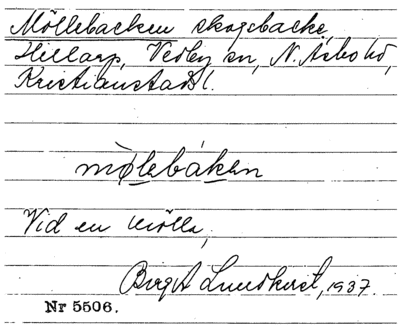 Möllebacken skogsbacke,
Hillarp, Vedby sn, N. Åsbo hd,
Kristianstads l.
mø̀lebáken
Vid en mölla,
Birgit Lundkvist, 1937.
Nr 5506.